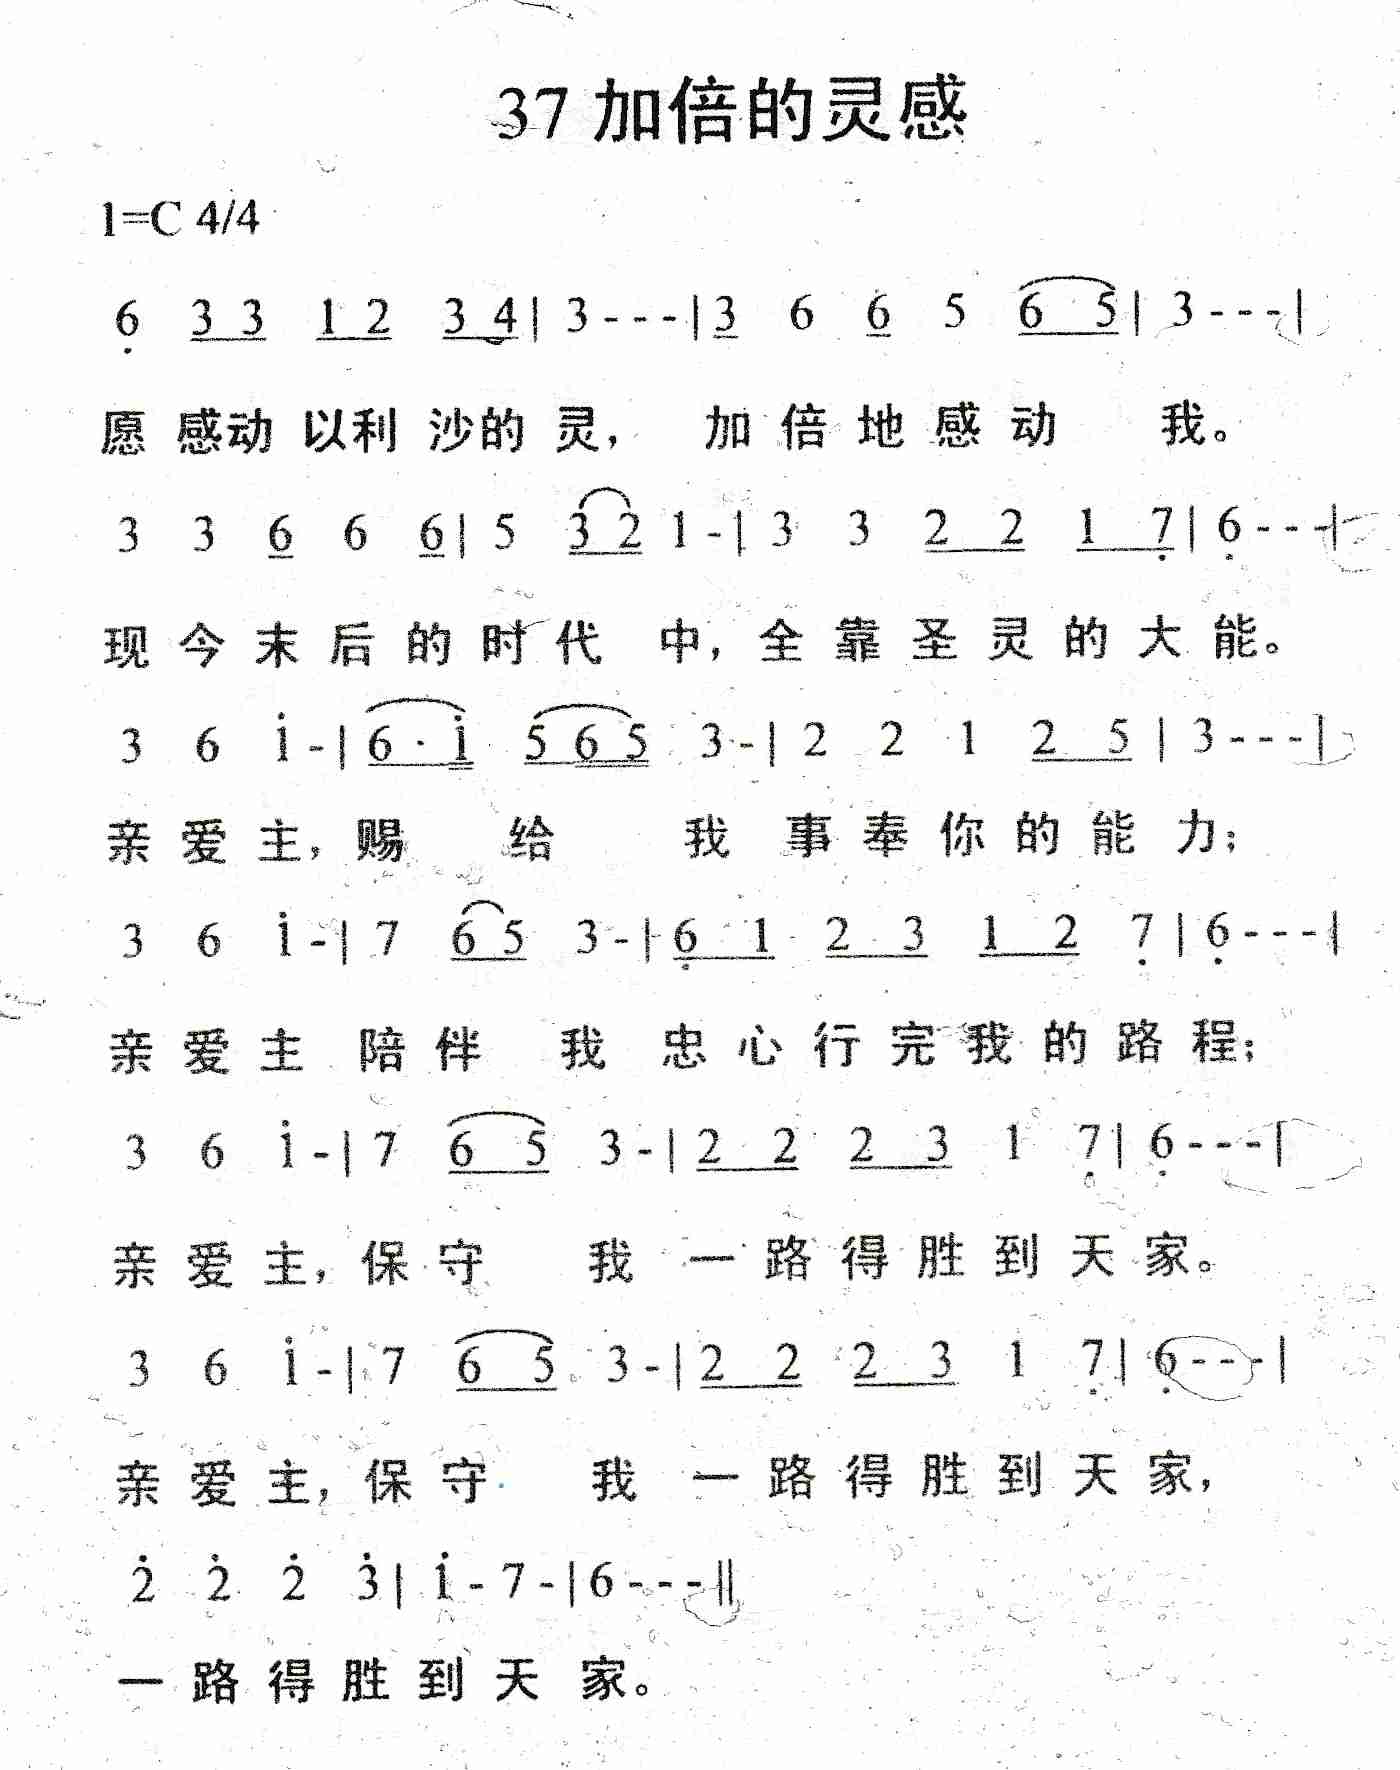 37 加倍的灵感
1=C 4/4
6̣ 3 3 1 2 3 4 | 3 - - - | 3 6 6 5 6 5 | 3 - - - |
愿 感动 以利 沙的 灵， 加 倍 地 感 动 我。
3 3 6 6 6 | 5 3 2 1 - | 3 3 2 2 1 7̣ | 6̣ - - - |
现 今 末 后 的 时 代 中，全 靠 圣 灵 的 大 能。
3 6 1̇ - | 6 · 1̇ 5 6 5 3 - | 2 2 1 2 5 | 3 - - - |
亲 爱 主，赐 给 我 事 奉 你 的 能 力；
3 6 1̇ - | 7 6 5 3 - | 6̣ 1 2 3 1 2 7̣ | 6̣ - - - |
亲 爱 主 陪 伴 我 忠 心 行 完 我 的 路 程；
3 6 1̇ - | 7 6 5 3 - | 2 2 2 3 1 7̣ | 6̣ - - - |
亲 爱 主，保 守 我 一 路 得 胜 到 天 家。
3 6 1̇ - | 7 6 5 3 - | 2 2 2 3 1 7̣ | 6̣ - - - |
亲 爱 主，保 守 我 一 路 得 胜 到 天 家，
2̇ 2̇ 2̇ 3̇ | 1̇ - 7 - | 6 - - - ‖
一 路 得 胜 到 天 家。